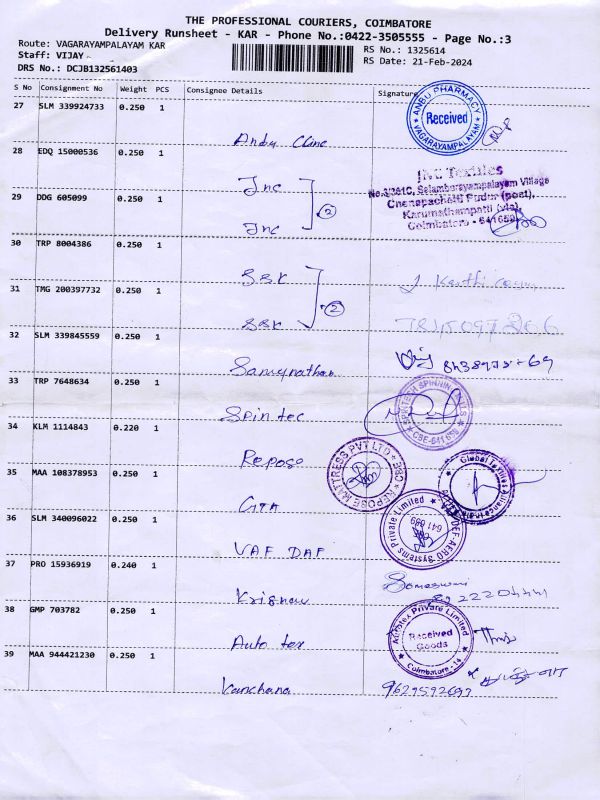 THE PROFESSIONAL COURIERS, COIMBATORE
Delivery Runsheet - KAR - Phone No.:0422-3505555 - Page No.:3
Route: VAGARAYAMPALAYAM KAR
RS No.: 1325614
Staff: VIJAY
RS Date: 21-Feb-2024
DRS No.: DCJB132561403
S No Consignment No Weight PCS Consignee Details Signature
27 SLM 339924733 0.250 1
ANBU PHARMACY
Received
VAGARAYAMPALAYAM
28 EDQ 15000536 0.250 1
Jnc
JNC Textiles
Coimbatore - 641659
29 DDG 605099 0.250 1
Jnc
2
30 TRP 8004386 0.250 1
SSK
31 TMG 200397732 0.250 1
SSK
2
32 SLM 339845559 0.250 1
Samynathan
33 TRP 7648634 0.250 1
Spintec
SPINTECH SPINNING MILLS
34 KLM 1114843 0.220 1
Repose
REPOSE MATTRESS PVT LTD
CBE
35 MAA 108378953 0.250 1
GTA
Global Textiles Alliance India
36 SLM 340096022 0.250 1
VAF DAF
DEF-AERO Systems Private Limited
37 PRO 15936919 0.240 1
Someswari
38 GMP 703782 0.250 1
Auto tex
Autotex Private Limited
Received
Goods
Coimbatore - 14
39 MAA 944421230 0.250 1
Kanchana